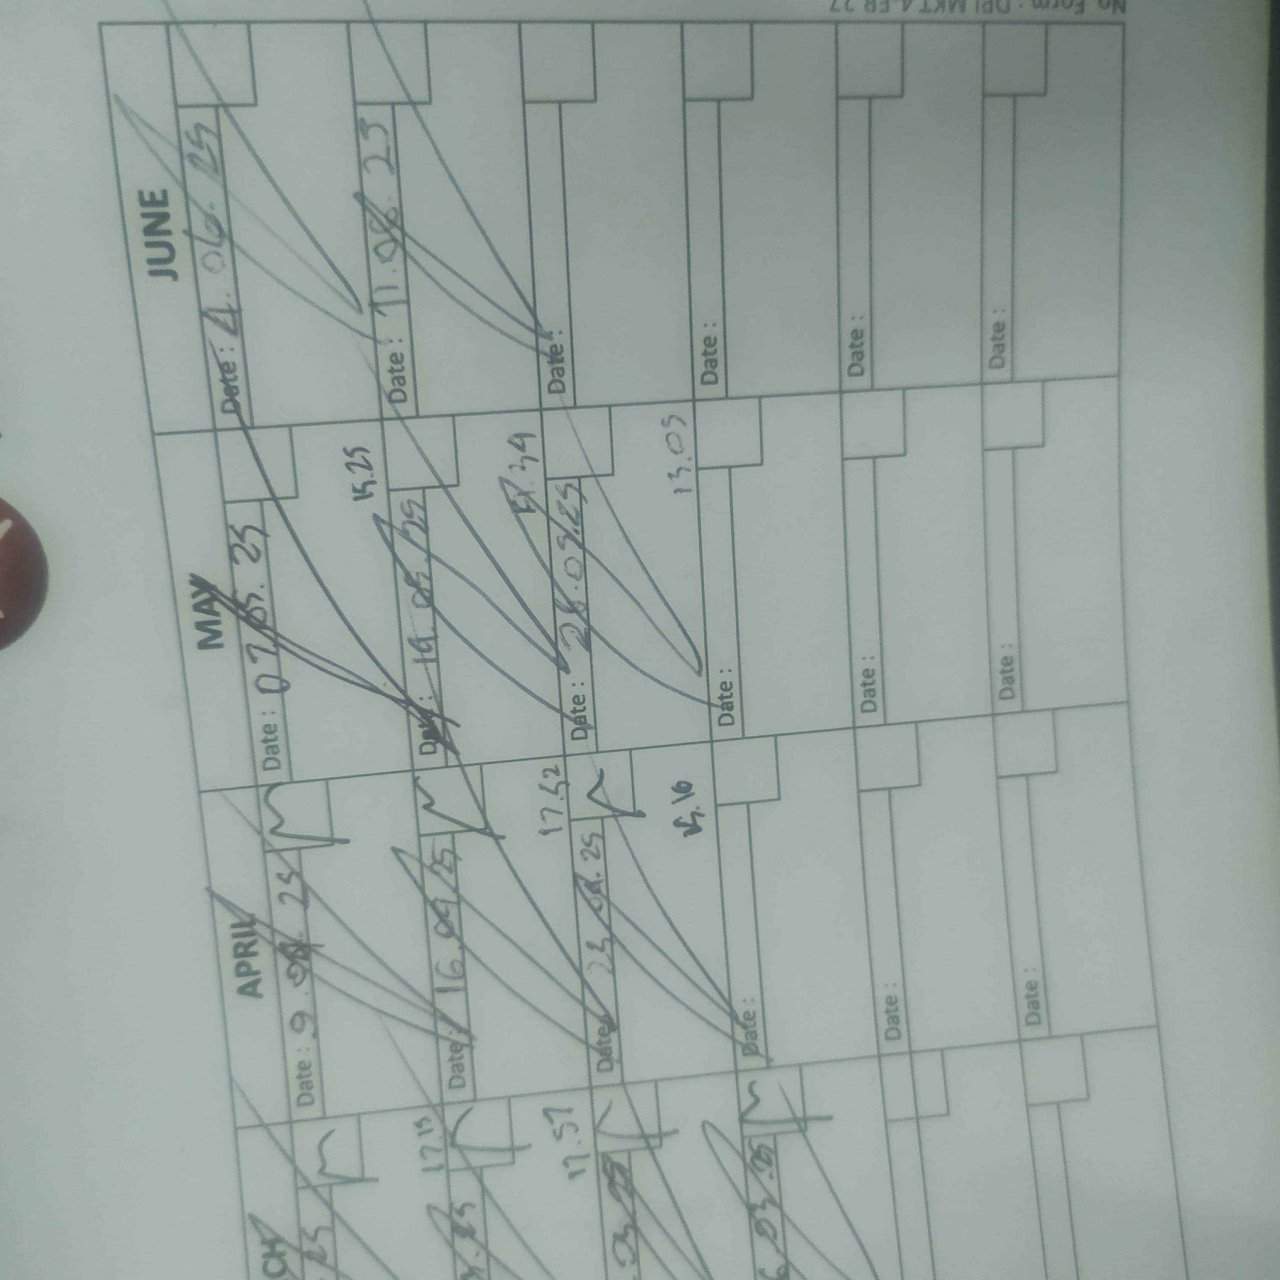 No Form : DPI.MKT.4.FR.27
JUNE
Date : 4.06.25
Date : 11.06.25
Date :
Date :
Date :
Date :
MAY
Date : 07.05.25
15.25
Date : 14.05.25
Date : 28.05.25
13.05
Date :
Date :
Date :
APRIL
Date : 9.04.25
Date : 16.04.25
17.52
Date : 23.04.25
15.16
Date :
Date :
Date :
CH
25
17.15
25
17.57
03.25